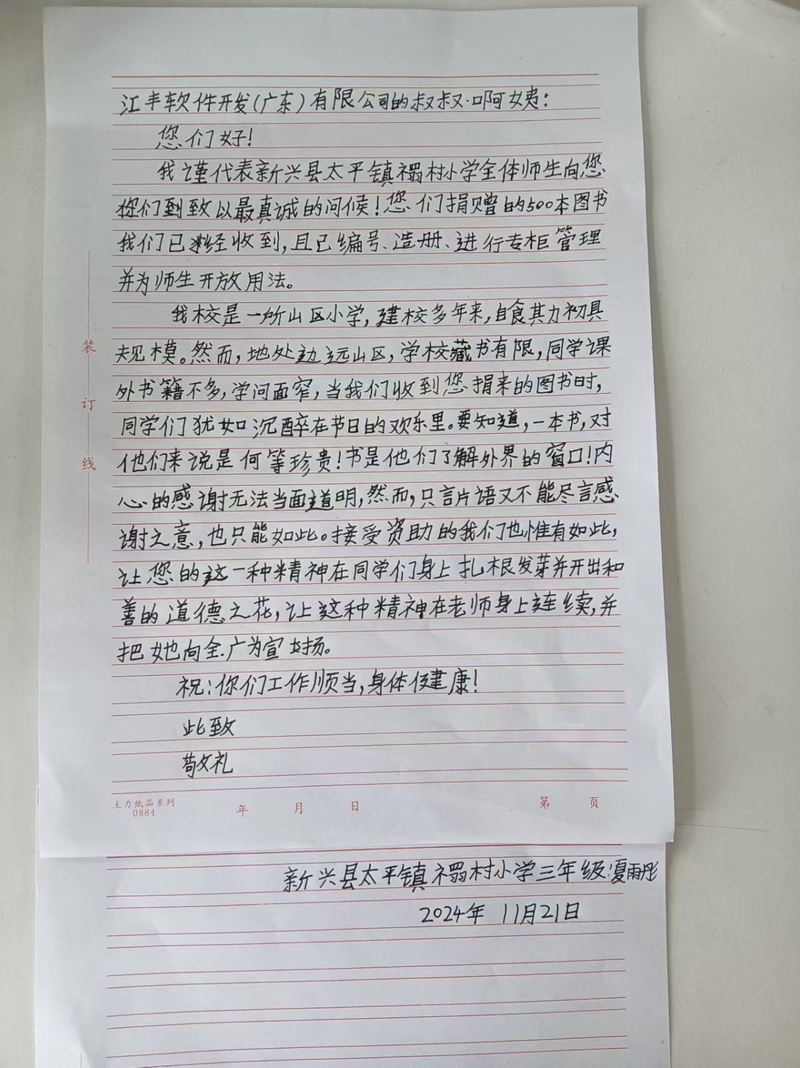 江丰软件开发(广东)有限公司的叔叔、啊姨:
您们好!
我谨代表新兴县太平镇禤村小学全体师生向您
您们到致以最真诚的问候!您们捐赠的500本图书
我们已经收到,且已编号、造册、进行专柜管理
并为师生开放用法。
我校是一所山区小学,建校多年来,自食其力初具
规模。然而,地处边远山区,学校藏书有限,同学课
外书籍不多,学问面窄,当我们收到您捐来的图书时,
同学们犹如沉醉在节日的欢乐里。要知道,一本书,对
他们来说是何等珍贵!书是他们了解外界的窗口!内
心的感谢无法当面道明,然而,只言片语又不能尽言感
谢之意,也只能如此。接受资助的我们也惟有如此,
让您的这一种精神在同学们身上扎根发芽并开出和
善的道德之花,让这种精神在老师身上连续,并
把她向全广为宣扬。
祝:你们工作顺当,身体健康!
此致
敬礼
装
订
线
主力纸品系列
0884
年 月 日
第 页
新兴县太平镇禤村小学三年级:夏雨彤
2024年 11月21日